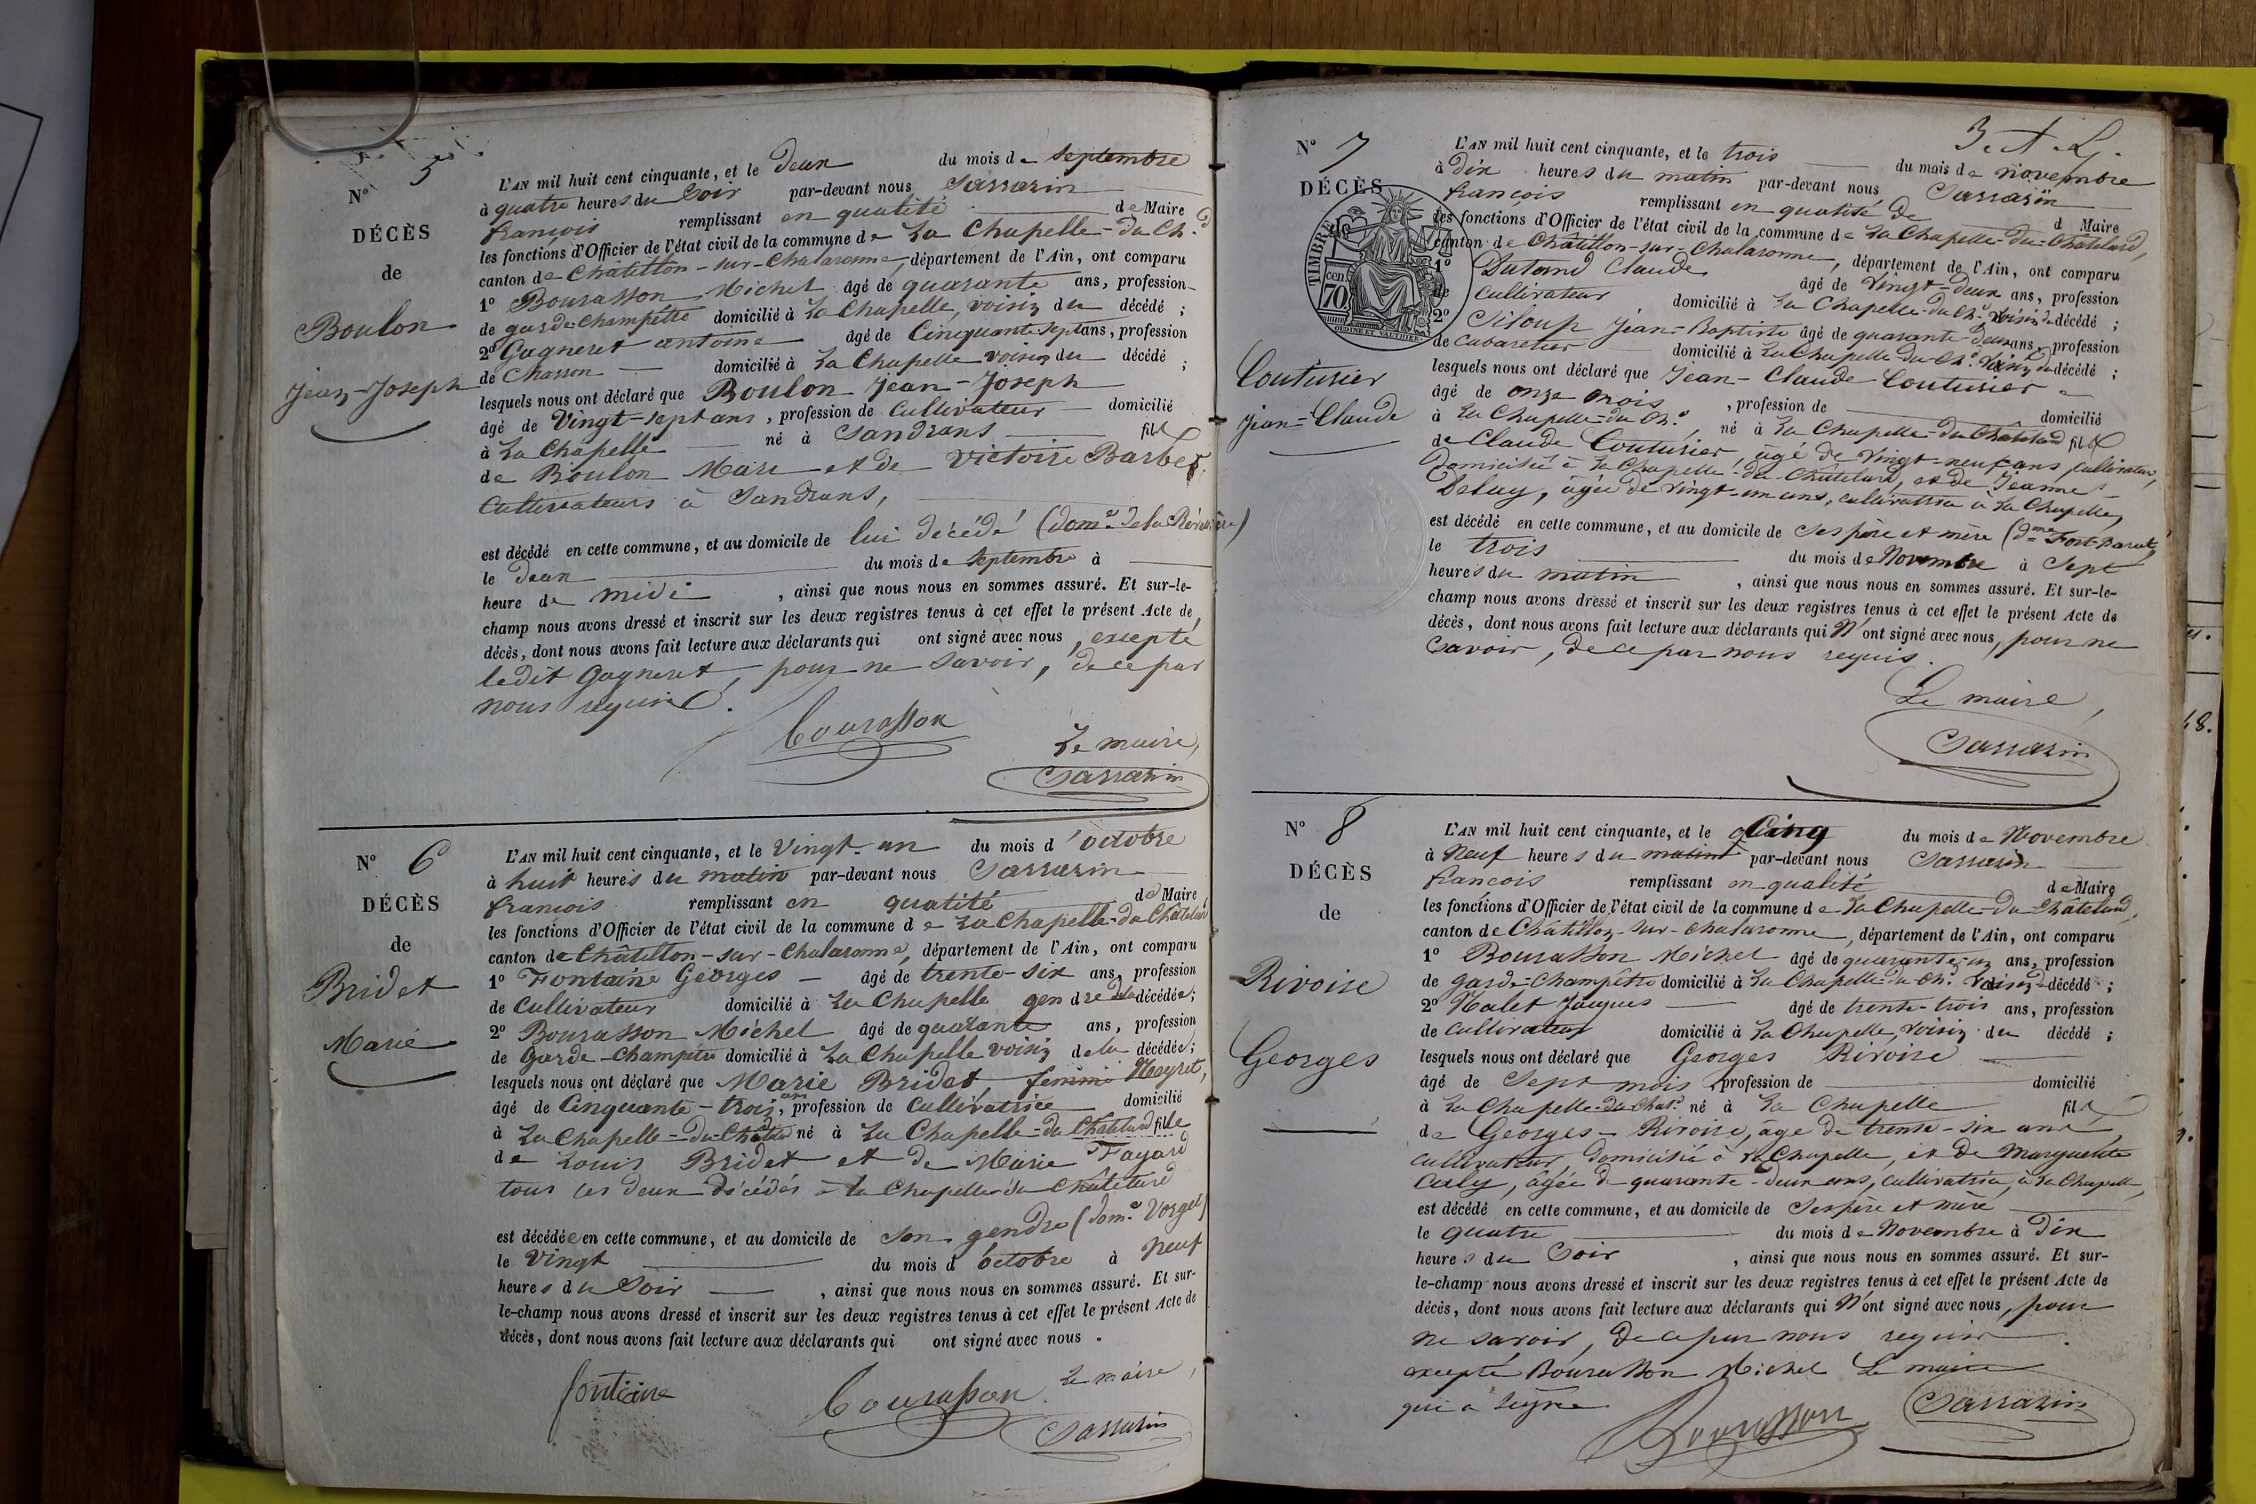 N° 5
DÉCÈS
de
Boulon
Jean-Joseph
L'AN mil huit cent cinquante, et le deux du mois de septembre
à quatre heures du soir par-devant nous Sarrasin
françois remplissant en qualité de Maire
les fonctions d'Officier de l'état civil de la commune de La Chapelle-du Ch.d
canton de Châtillon-sur-Chalaronne, département de l'Ain, ont comparu
1° Bourasson Michel âgé de quarante ans, profession
de garde-champêtre domicilié à La Chapelle, voisin du décédé ;
2° Gagneret antoine âgé de Cinquante-sept ans, profession
de Chasson domicilié à La Chapelle voisin du décédé ;
lesquels nous ont déclaré que Boulon Jean-Joseph
âgé de Vingt-sept ans, profession de Cultivateur domicilié
à La Chapelle né à Sandrans fils
de Boulon Marie et de Victoire Barbet
Cultivateurs à Sandrans,
est décédé en cette commune, et au domicile de lui décédé (dom.e de la
le deux du mois de septembre à
heure de midi, ainsi que nous nous en sommes assuré. Et sur-le-
champ nous avons dressé et inscrit sur les deux registres tenus à cet effet le présent Acte de
décès, dont nous avons fait lecture aux déclarants qui ont signé avec nous, excepté
ledit Gagneret, pour ne savoir, de ce par
nous requis.
Bourasson
Le maire,
Sarrasin
N° 6
DÉCÈS
de
Bridet
Marie
L'AN mil huit cent cinquante, et le Vingt-un du mois d'octobre
à huit heures du matin par-devant nous Sarrasin
françois remplissant en qualité de Maire
les fonctions d'Officier de l'état civil de la commune de La Chapelle-du Châtelard
canton de Châtillon-sur-Chalaronne, département de l'Ain, ont comparu
1° Fontaine Georges âgé de trente-six ans, profession
de Cultivateur domicilié à La Chapelle gendre de la décédée ;
2° Bourasson Michel âgé de quarante ans, profession
de Garde-champêtre domicilié à La Chapelle voisin de la décédée ;
lesquels nous ont déclaré que Marie Bridet, femme Neyret,
âgé de Cinquante-trois ans, profession de Cultivatrice domicilié
à La Chapelle-du-Châtelard né à La Chapelle-du Châtelard fille
de Louis Bridet et de Marie Fayard
tous les deux décédés à la Chapelle du Châtelard
est décédée en cette commune, et au domicile de son gendre (dom.e Vorget)
le Vingt du mois d'octobre à neuf
heures du soir, ainsi que nous nous en sommes assuré. Et sur-
le-champ nous avons dressé et inscrit sur les deux registres tenus à cet effet le présent Acte de
décès, dont nous avons fait lecture aux déclarants qui ont signé avec nous.
fontaine
Bourasson
Le maire,
Sarrasin
3. A. L.
N° 7
DÉCÈS
de
TIMBRE
cen
70
Couturier
Jean-Claude
L'AN mil huit cent cinquante, et le trois du mois de novembre
à Dix heures du matin par-devant nous Sarrasin
françois remplissant en qualité de d Maire
les fonctions d'Officier de l'état civil de la commune de La Chapelle-du-Châtelard,
canton de Châtillon-sur-Chalaronne, département de l'Ain, ont comparu
1° Dutand Claude âgé de Vingt-deux ans, profession
de Cultivateur domicilié à La Chapelle-du Ch.d Voisin du décédé ;
2° Siloup Jean-Baptiste âgé de quarante-deux ans, profession
de Cabaretier domicilié à La Chapelle du Ch.d Voisin du décédé ;
lesquels nous ont déclaré que Jean-Claude Couturier
âgé de onze mois, profession de domicilié
à La Chapelle-du Ch.d, né à La Chapelle-du Châtelard fils
de Claude Couturier, âgé de Vingt-neuf ans, cultivateur,
domicilié à La Chapelle-du Châtelard, et de Jeanne
Delay, âgée de vingt-un ans, cultivatrice à La Chapelle,
est décédé en cette commune, et au domicile de ses père et mère
le trois du mois de Novembre à Sept
heures du matin, ainsi que nous nous en sommes assuré. Et sur-le-
champ nous avons dressé et inscrit sur les deux registres tenus à cet effet le présent Acte de
décès, dont nous avons fait lecture aux déclarants qui N'ont signé avec nous, pour ne
savoir, de ce par nous requis.
Le maire,
Sarrasin
N° 8
DÉCÈS
de
Rivoire
Georges
L'AN mil huit cent cinquante, et le Cinq du mois de Novembre
à Neuf heures du matin par-devant nous Sarrasin
françois remplissant en qualité de Maire
les fonctions d'Officier de l'état civil de la commune de La Chapelle-du Châtelard,
canton de Châtillon-sur-chalaronne, département de l'Ain, ont comparu
1° Bourasson Michel âgé de quarante-un ans, profession
de garde-champêtre domicilié à La Chapelle-du-Ch.d Voisin du décédé ;
2° Malet Jacques âgé de trente-trois ans, profession
de Cultivateur domicilié à La Chapelle, voisin du décédé ;
lesquels nous ont déclaré que Georges Rivoire
âgé de Sept mois, profession de domicilié
à La Chapelle-du Chat.d né à La Chapelle fils
de Georges Rivoire, âgé de trente-six ans,
cultivateur, domicilié à La Chapelle, et de Marguerite
Carly, âgée de quarante-deux ans, cultivatrice, à La Chapelle,
est décédé en cette commune, et au domicile de Ses père et mère
le quatre du mois de Novembre à Dix
heures du Soir, ainsi que nous nous en sommes assuré. Et sur-
le-champ nous avons dressé et inscrit sur les deux registres tenus à cet effet le présent Acte de
décès, dont nous avons fait lecture aux déclarants qui N'ont signé avec nous, pour
ne savoir, de ce par nous requis
excepté Bourasson Michel Le maire
qui a signé
Bourasson
Sarrasin